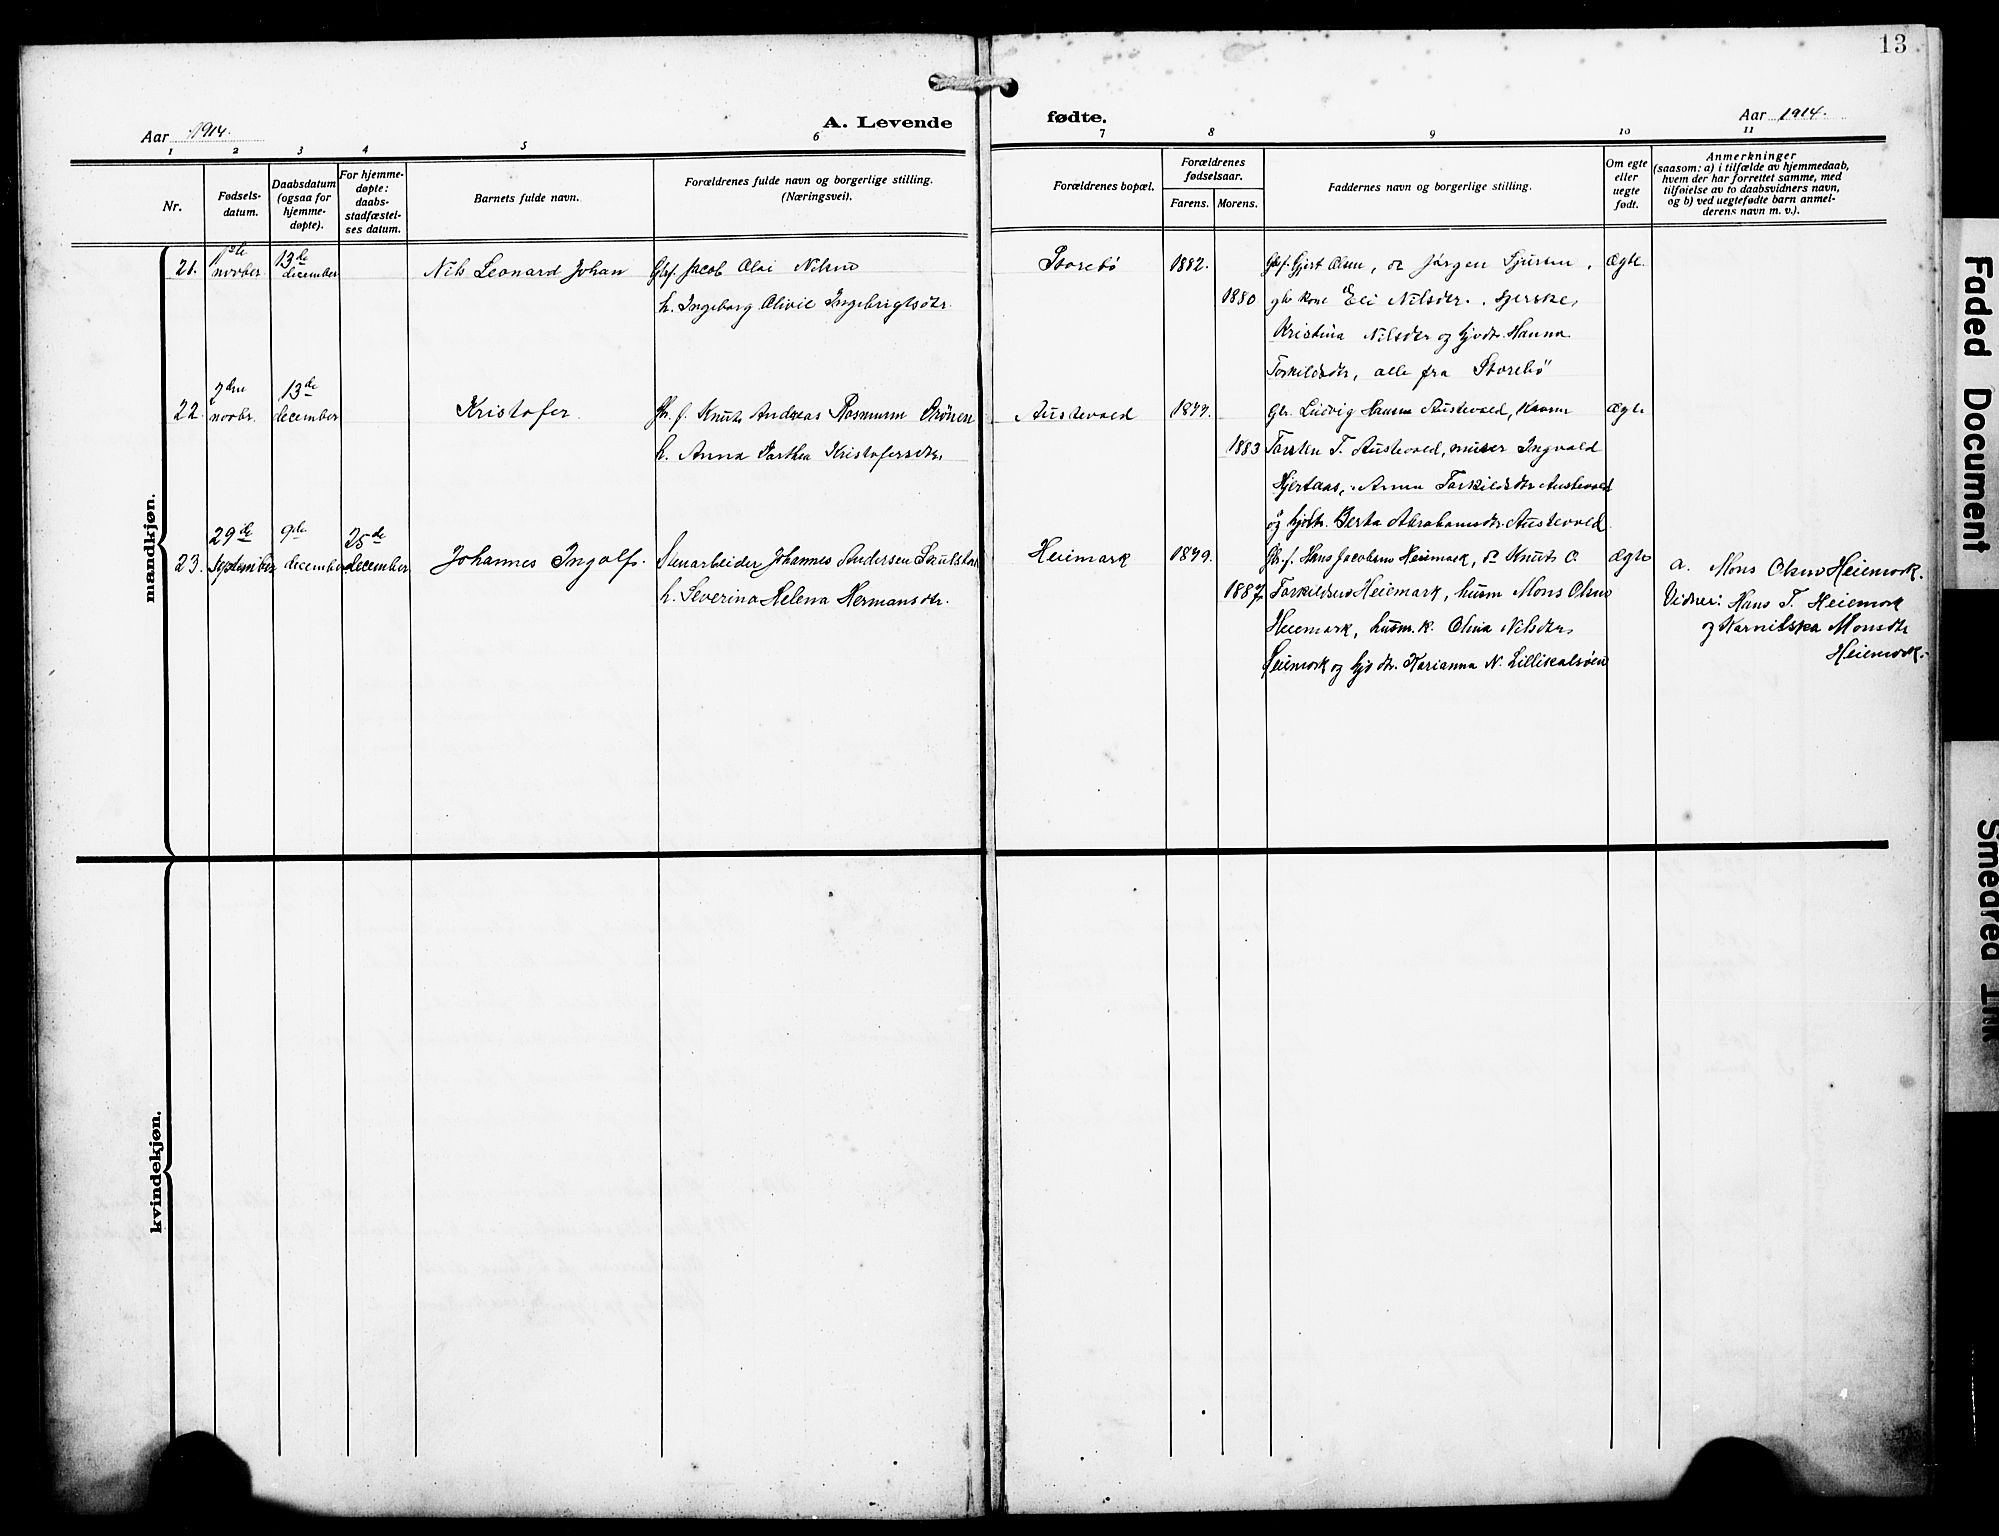 13
Aar 1914.
A. Levende fødte.
Aar 1914.
1 2 3 4 5 6 7 8 9 10 11
Nr.
Fødsels-
datum.
Daabsdatum
(ogsaa for
hjemme-
døpte).
For hjemme-
døpte:
daabs-
stadfæstel-
ses datum.
Barnets fulde navn.
Forældrenes fulde navn og borgerlige stilling.
(Næringsvei).
Forældrenes bopæl.
Forældrenes
fødselsaar.
Farens. Morens.
Faddernes navn og borgerlige stilling.
Om egte
eller
uegte
født.
Anmerkninger
(saasom: a) i tilfælde av hjemmedaab,
hvem der har forrettet samme, med
tilføielse av to daabsvidners navn,
og b) ved uegtefødte barn anmel-
derens navn m. v.).
mandkjøn.
21.
novber
13de
december
Nils Leonard Johan
Gbf. Jacob Olai Nilsen
h. Ingeborg Olivie Ingebrigtsdtr.
Storebø
1882.
1880
Gbf. Gjert Olsen, do Jørgen Sjursen,
gbr kone Eli Nilsdtr.
Kristina Nilsdtr og Hanna
Torkildsdtr, alle fra Storebö
Ægte.
22.
2den
novbr.
13de
december
Kristofer.
Gbr. f. Knut Andreas Rasmussen Drönen
h. Anna Dorthea Kristofersdtr.
Austevold
1877.
1883
Gbr. Ludvig Hansen Austevold,
Torsten T. Austevold, murer Ingvald
Hjertaas, Anna Torkildsdtr Austevold
og Berta Abrahamsdtr. Austevold.
Ægte
23.
29de
September
9de
december
25de
december
Johannes Ingolf.
Stenarbeider Johannes Andersen
h. Severina Helena Hermansdtr.
Heimark
1879.
1887
Gbr. f. Hans Jacobsen Heiemark, do Knut O.
Torkildsen Heiemark, husm Mons Olsen
Heiemark, husm. k. Olina Nilsdtr
Heiemark og Karianna N. Lilliskalsöen
Ægte
a. Mons Olsen Heiemark.
Vidner: Hans T. Heiemark
og Karnilska Monsdtr
Heiemark.
kvindekjøn.
Faded Document
Smeared Ink